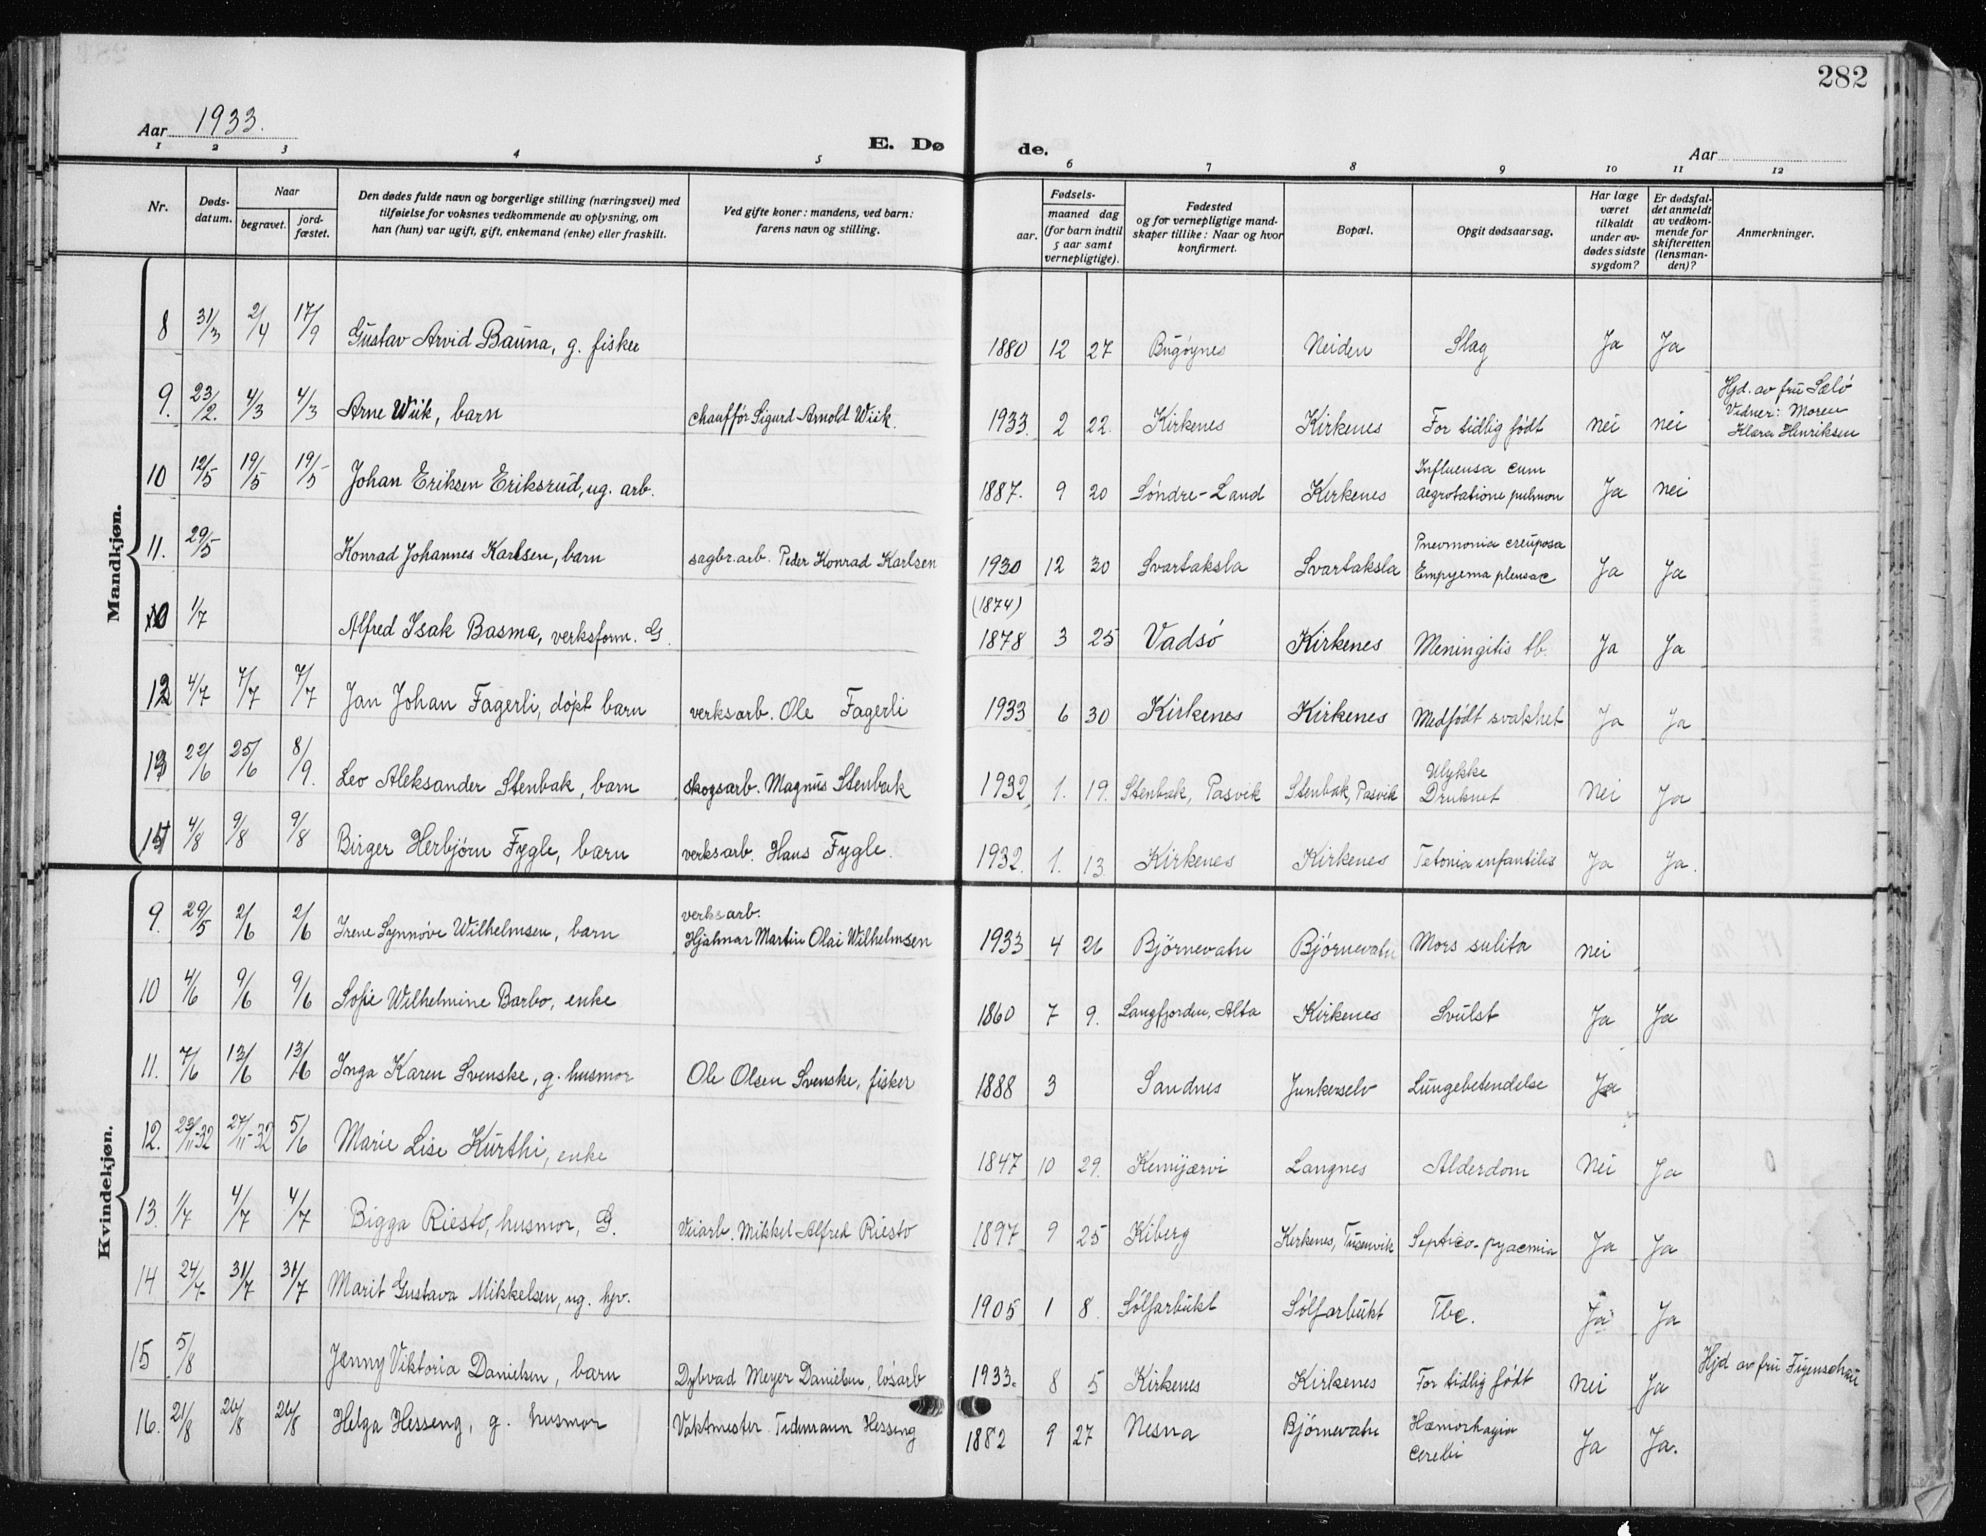 282
Aar 1933.
E. Dø de.
Aar
1 2 3 4 5 6 7 8 9 10 11 12
Nr.
Døds-datum.
Naar
begravet.
jord-fæstet.
Den dødes fulde navn og borgerlige stilling (næringsvei) med
tilføielse for voksnes vedkommende av oplysning, om
han (hun) var ugift, gift, enkemand (enke) eller fraskilt.
Ved gifte koner: mandens, ved barn:
farens navn og stilling.
Fødsels-
aar.
maaned dag
(for barn indtil
5 aar samt
vernepligtige).
Fødested
og for vernepligtige mand-
skaper tillike: Naar og hvor
konfirmert.
Bopæl.
Opgit dødsaarsag.
Har læge
været
tilkaldt
under av-
dødes sidste
sygdom?
Er dødsfal-
det anmeldt
av vedkom-
mende for
skifteretten
(lensman-
den)?
Anmerkninger.
Mandkjøn.
8 31/3 2/4 17/9 Gustav Arvid Bauna, g. fisker 1880 12 27 Bugøynes Neiden Slag Ja Ja
9. 23/2. 4/3 4/3 Arne Wiik, barn chauffør Sigurd Arnold Wiik. 1933. 2 22. Kirkenes Kirkenes For tidlig født nei nei Hjd. av fru Sælø
Vidner: Moren
Klara Henriksen
10 12/5 19/5 19/5 Johan Eriksen Eriksrud, ug. arb. 1887. 9 20 Søndre-Land Kirkenes Influensa cum
aegrotatione pulmon Ja nei
11. 29/5 Konrad Johannes Karlsen, barn sagbr.arb. Peder Konrad Karlsen 1930 12 30 Svartaksla Svartaksla Pnevmonia creuposa
Empyema pleusae Ja Ja
1/7 Alfred Isak Basma, verksform. G. (1874)
1878 3 25 Vadsø Kirkenes Meningitis tb. Ja Ja
12 4/7 7/7 7/7 Jan Johan Fagerli, døpt barn verksarb. Ole Fagerli 1933 6 30 Kirkenes Kirkenes Medfødt svakhet Ja Ja
13 22/6 25/6 8/9. Leo Aleksander Stenbak, barn skogsarb. Magnus Stenbak 1932 1. 19. Stenbak, Pasvik Stenbak, Pasvik Ulykke
Druknet Nei Ja
4/8 9/8 9/8 Birger Herbjørn Fygle, barn verksarb. Hans Fygle. 1932. 1. 13. Kirkenes Kirkenes Tetonia infantilis Ja Ja.
Kvindekjøn.
9. 29/5 2/6 2/6 Irene Synnøve Wilhelmsen, barn verksarb.
Hjalmar Martin Olai Wilhelmsen 1933 4 26 Bjørnevatn Bjørnevatn Mors subita nei
10 4/6 9/6 9/6 Sofie Wilhelmine Barbo, enke 1860 7 9. Langfjorden, Alta Kirkenes Svulst Ja Ja
11. 7/6 13/6 13/6 Inga Karen Svenske, g. husmor Ole Olsen Svenske, fisker 1888 3 Sandnes Junkerselv Lungebetendelse Ja
12. 23/11-32 27/11-32 5/6 Marie Lise Kurthi, enke 1847 10 29. Kemijærvi Langnes Alderdom Nei Ja
13. 1/7 4/7 4/7 Bigga Riesto, husmor, G. Veiarb. Mikkel Alfred Riesto 1897 9 25 Kiberg Kirkenes, Tusenvik Septico-pyaemia Ja Ja
14 24/7 31/7 31/7 Marit Gustava Mikkelsen, ug. hjv. 1905 1 8. Sølfarbukt Sølfarbukt Tbc. Ja Ja
15 5/8 Jenny Viktoria Danielsen, barn Dybvad Meyer Danielsen, løsarb 1933. 8 5 Kirkenes Kirkenes For tidlig født Nei Ja Hjd av fru Figenschau
16. 21/8 26/8 26/8 Helga Hesseng, g. husmor Vaktmester Tidemann Hesseng 1882 9 27 Nesna Bjørnevatn Hæmorhagia
cerebi Ja Ja.